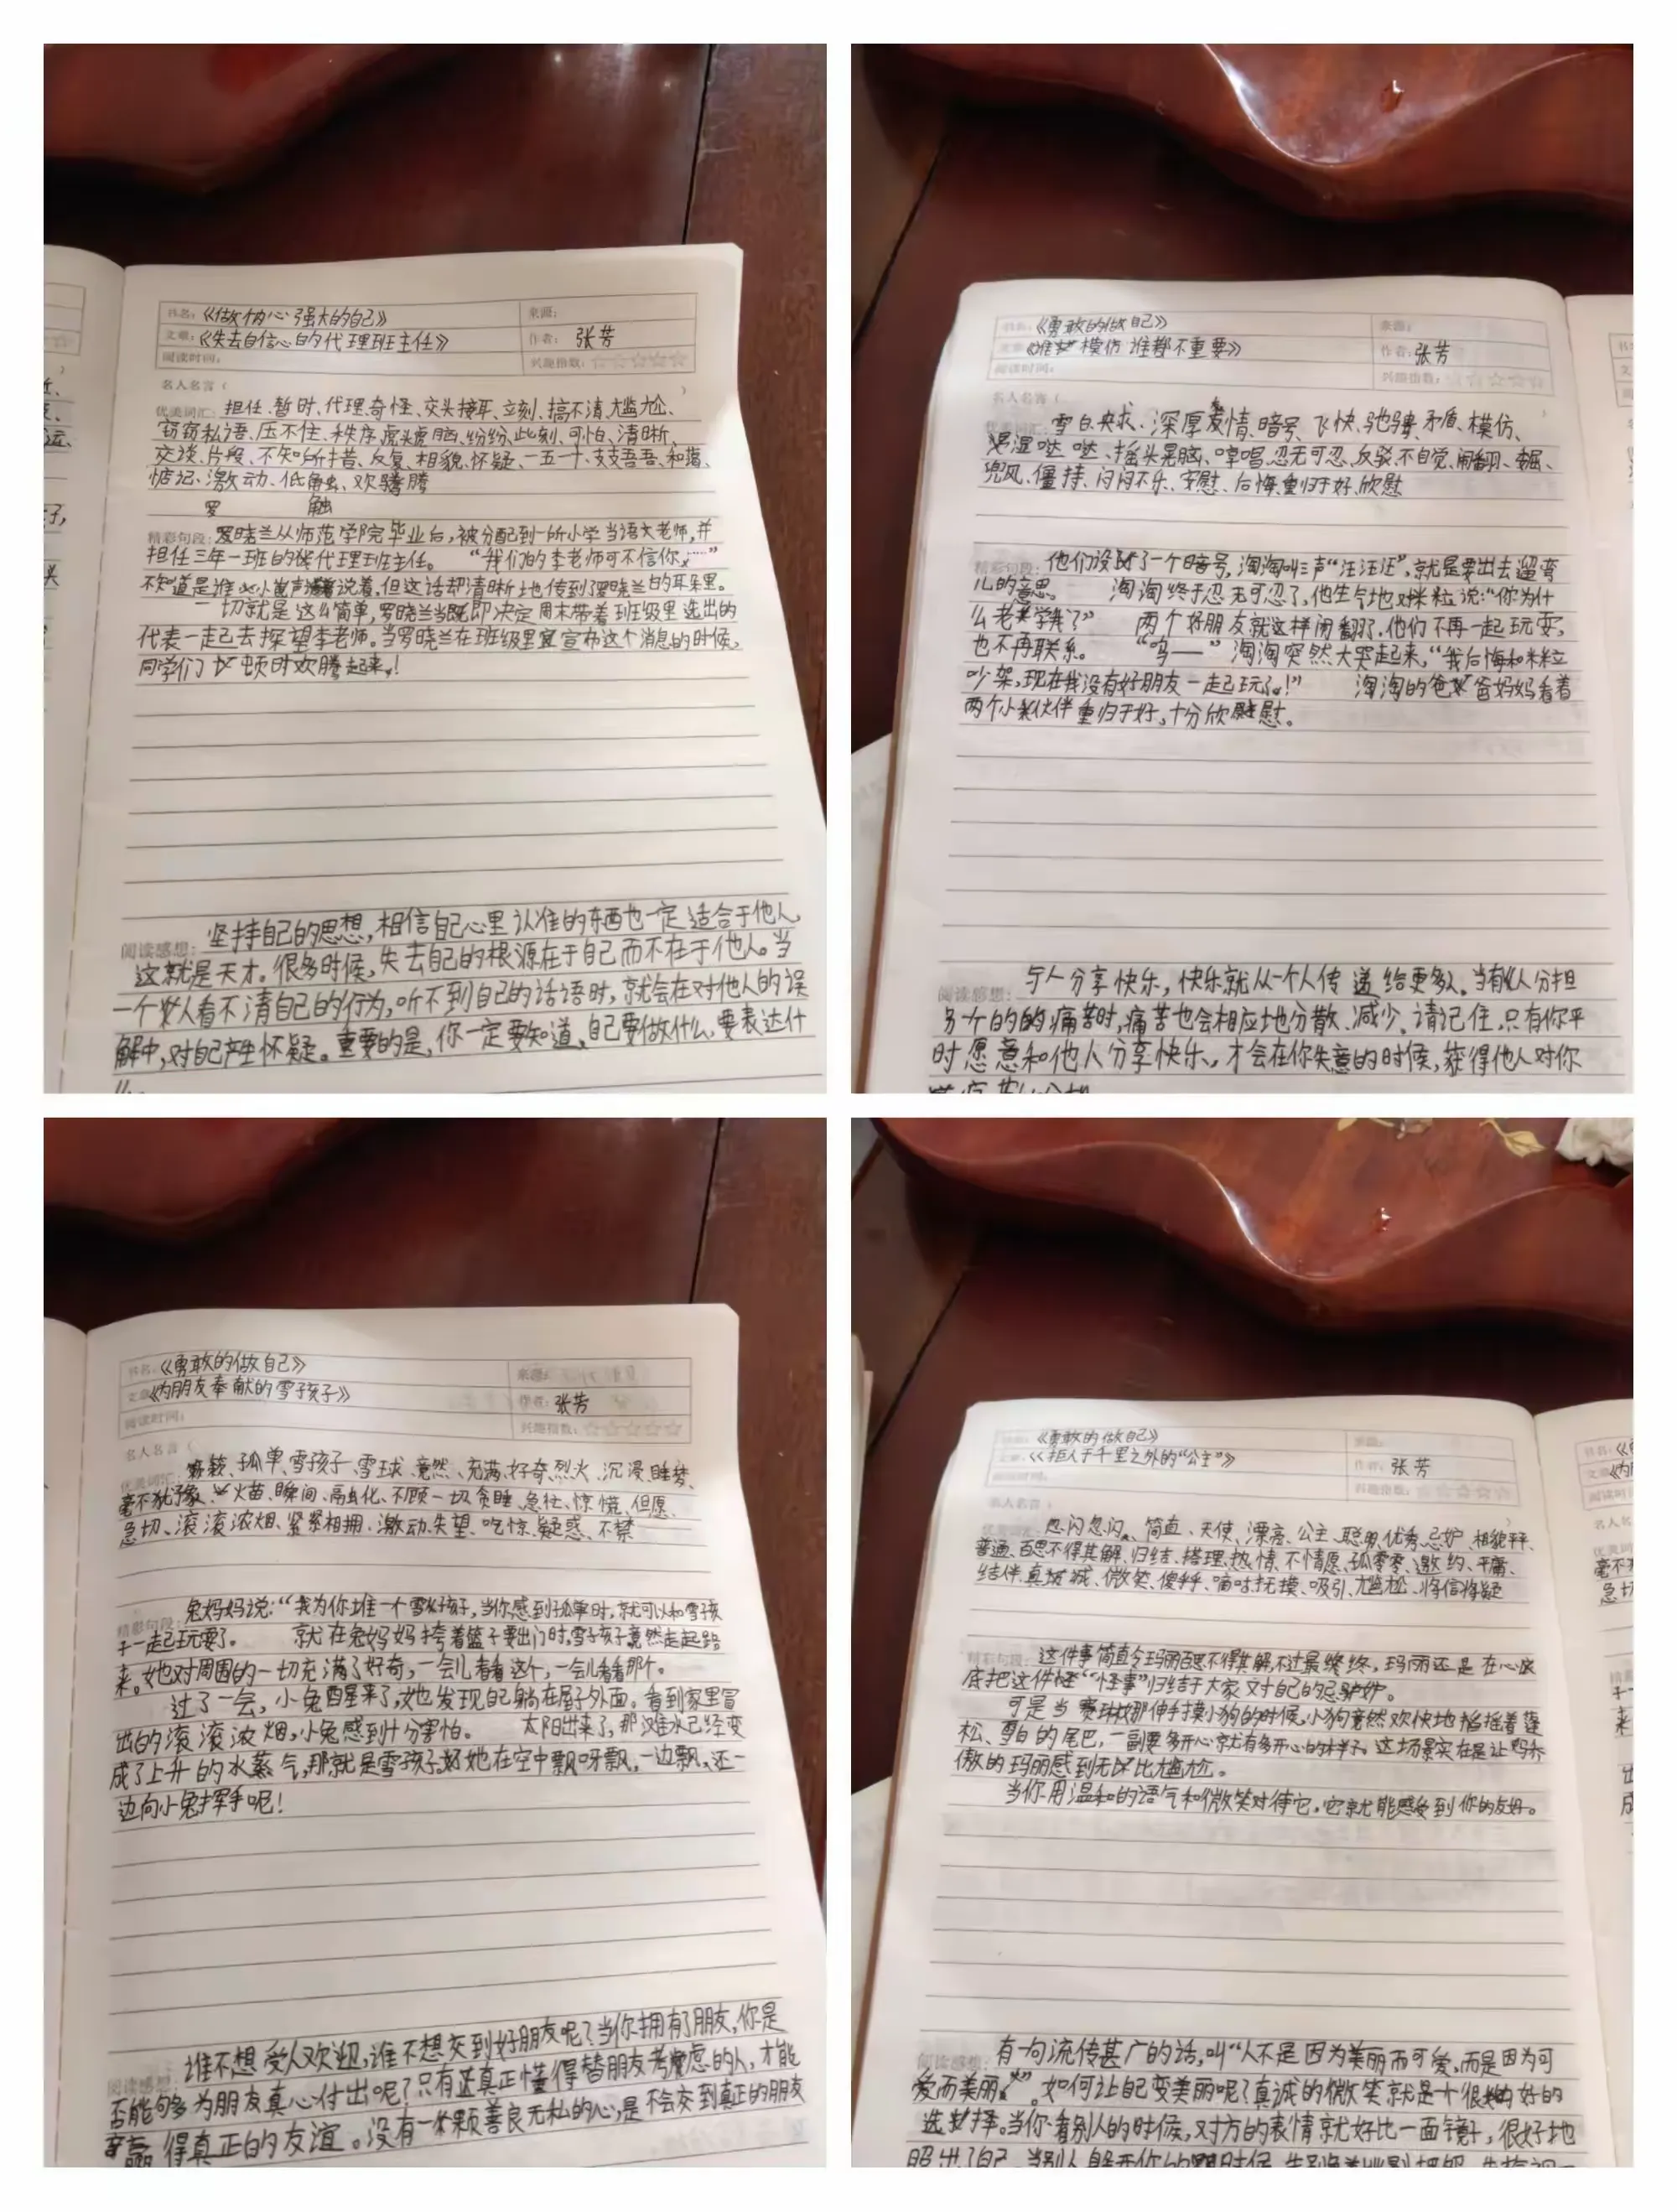 书名:《做个内心强大的自己》 来源:
文章:《失去自信心的代理班主任》 作者: 张芳
阅读时间: 兴趣指数:☆☆☆☆☆
名人名言( )
优美词汇: 担任、暂时、代理、奇怪、交头接耳、立刻、搞不清、尴尬、
窃窃私语、压不住、秩序、虎头虎脑、纷纷、此刻、可怕、清晰、
交谈、片段、不知所措、反复、相貌、怀疑、一五一十、支支吾吾、和蔼、
惦记、激动、低触、欢腾
罗 触
精彩句段: 罗晓兰从师范学院毕业后,被分配到一所小学当语文老师,并
担任三年一班的代理班主任。 “我们的李老师可不信你……”
不知道是谁小声说着,但这话却清晰地传到了罗晓兰的耳朵里。
一切就是这么简单,罗晓兰当即决定周末带着班级里选出的
代表一起去探望李老师。当罗晓兰在班级里宣布这个消息的时候,
同学们顿时欢腾起来!
阅读感想: 坚持自己的思想,相信自己心里认准的东西也一定适合于他人,
这就是天才。很多时候,失去自己的根源在于自己而不在于他人。当
一个人看不清自己的行为,听不到自己的话语时,就会在对他人的误
解中,对自己产生怀疑。重要的是,你一定要知道,自己要做什么,要表达什
么。
书名:《勇敢的做自己》 来源:
文章:《谁模仿谁都不重要》 作者:张芳
阅读时间: 兴趣指数:☆☆☆☆☆
名人名言(
优美词汇: 雪白、央求、深厚、友情、暗号、飞快、驰骋、矛盾、模仿、
湿哒哒、摇头晃脑、哼唱、忍无可忍、反驳、不自觉、闹翻、倔、
兜风、僵持、闷闷不乐、安慰、后悔、重归于好、欣慰
精彩句段: 他们设了一个暗号,淘淘叫三声“汪汪汪”,就是要出去遛弯
儿的意思。 淘淘终于忍无可忍了,他生气地对米粒说:“你为什
么老学我?” 两个好朋友就这样闹翻了,他们不再一起玩耍,
也不再联系。 “呜——”淘淘突然大哭起来,“我后悔和米粒
吵架,现在我没有好朋友一起玩了!” 淘淘的爸爸妈妈看着
两个小伙伴重归于好,十分欣慰。
阅读感想: 与人分享快乐,快乐就从一个人传递给更多人。当有人分担
另个的的痛苦时,痛苦也会相应地分散、减少。请记住,只有你平
时愿意和他人分享快乐,才会在你失意的时候,获得他人对你
书名:《勇敢的做自己》 来源:
文章《为朋友奉献的雪孩子》 作者: 张芳
阅读时间: 兴趣指数:☆☆☆☆☆
名人名言(
优美词汇: 孤单、雪孩子、雪球、竟然、充满、好奇、烈火、沉浸、睡梦、
毫不犹豫、火苗、瞬间、融化、不顾一切、贪睡、急忙、惊慌、但愿、
急切、滚滚浓烟、紧紧相拥、激动、失望、吃惊、疑惑、不禁
精彩句段: 兔妈妈说:“我为你堆一个雪孩子,当你感到孤单时,就可以和雪孩
子一起玩耍了。 就在兔妈妈挎着篮子要出门时,雪孩子竟然走起路
来。她对周围的一切充满了好奇,一会儿看看这个,一会儿看看那个。
过了一会,小兔醒来了,她发现自己躺在屋子外面。看到家里冒
出的滚滚浓烟,小兔感到十分害怕。 太阳出来了,那滩水已经变
成了上升的水蒸气,那就是雪孩子。她在空中飘呀飘,一边飘,还一
边向小兔挥手呢!
阅读感想: 谁不想受人欢迎,谁不想交到好朋友呢?当你拥有了朋友,你是
否能够为朋友真心付出呢?只有真正懂得替朋友考虑的人,才能
赢得真正的友谊。没有一颗善良无私的心,是不会交到真正的朋友
《勇敢的做自己》
《拒人于千里之外的“公主”》 作者: 张芳
兴趣指数:☆☆☆☆☆
名人名言(
优美词汇: 忽闪忽闪、简直、天使、漂亮、公主、聪明、优秀、忌妒、相貌平平、
普通、百思不得其解、归结、搭理、热情、不情愿、孤零零、邀约、平庸、
结伴、真诚、微笑、傻乎乎、嘀咕、抚摸、吸引、尴尬、将信将疑
精彩句段: 这件事简直令玛丽百思不得其解,不过最终,玛丽还是在心底
底把这件“怪事”归结于大家对自己的忌妒。
可是当赛琳娜那伸手摸小狗的时候,小狗竟然欢快地摇着蓬
松、雪白的尾巴,一副要多开心就有多开心的样子。这场景实在是让骄
傲的玛丽感到无比尴尬。
当你用温和的语气和微笑对待它,它就能感受到你的友好。
阅读感想: 有一句流传甚广的话,叫“人不是因为美丽而可爱,而是因为可
爱而美丽”。如何让自己变美丽呢?真诚的微笑就是个很好的
选择。当你看别人的时候,对方的表情就好比一面镜子,很好地
照出了自己。当别人